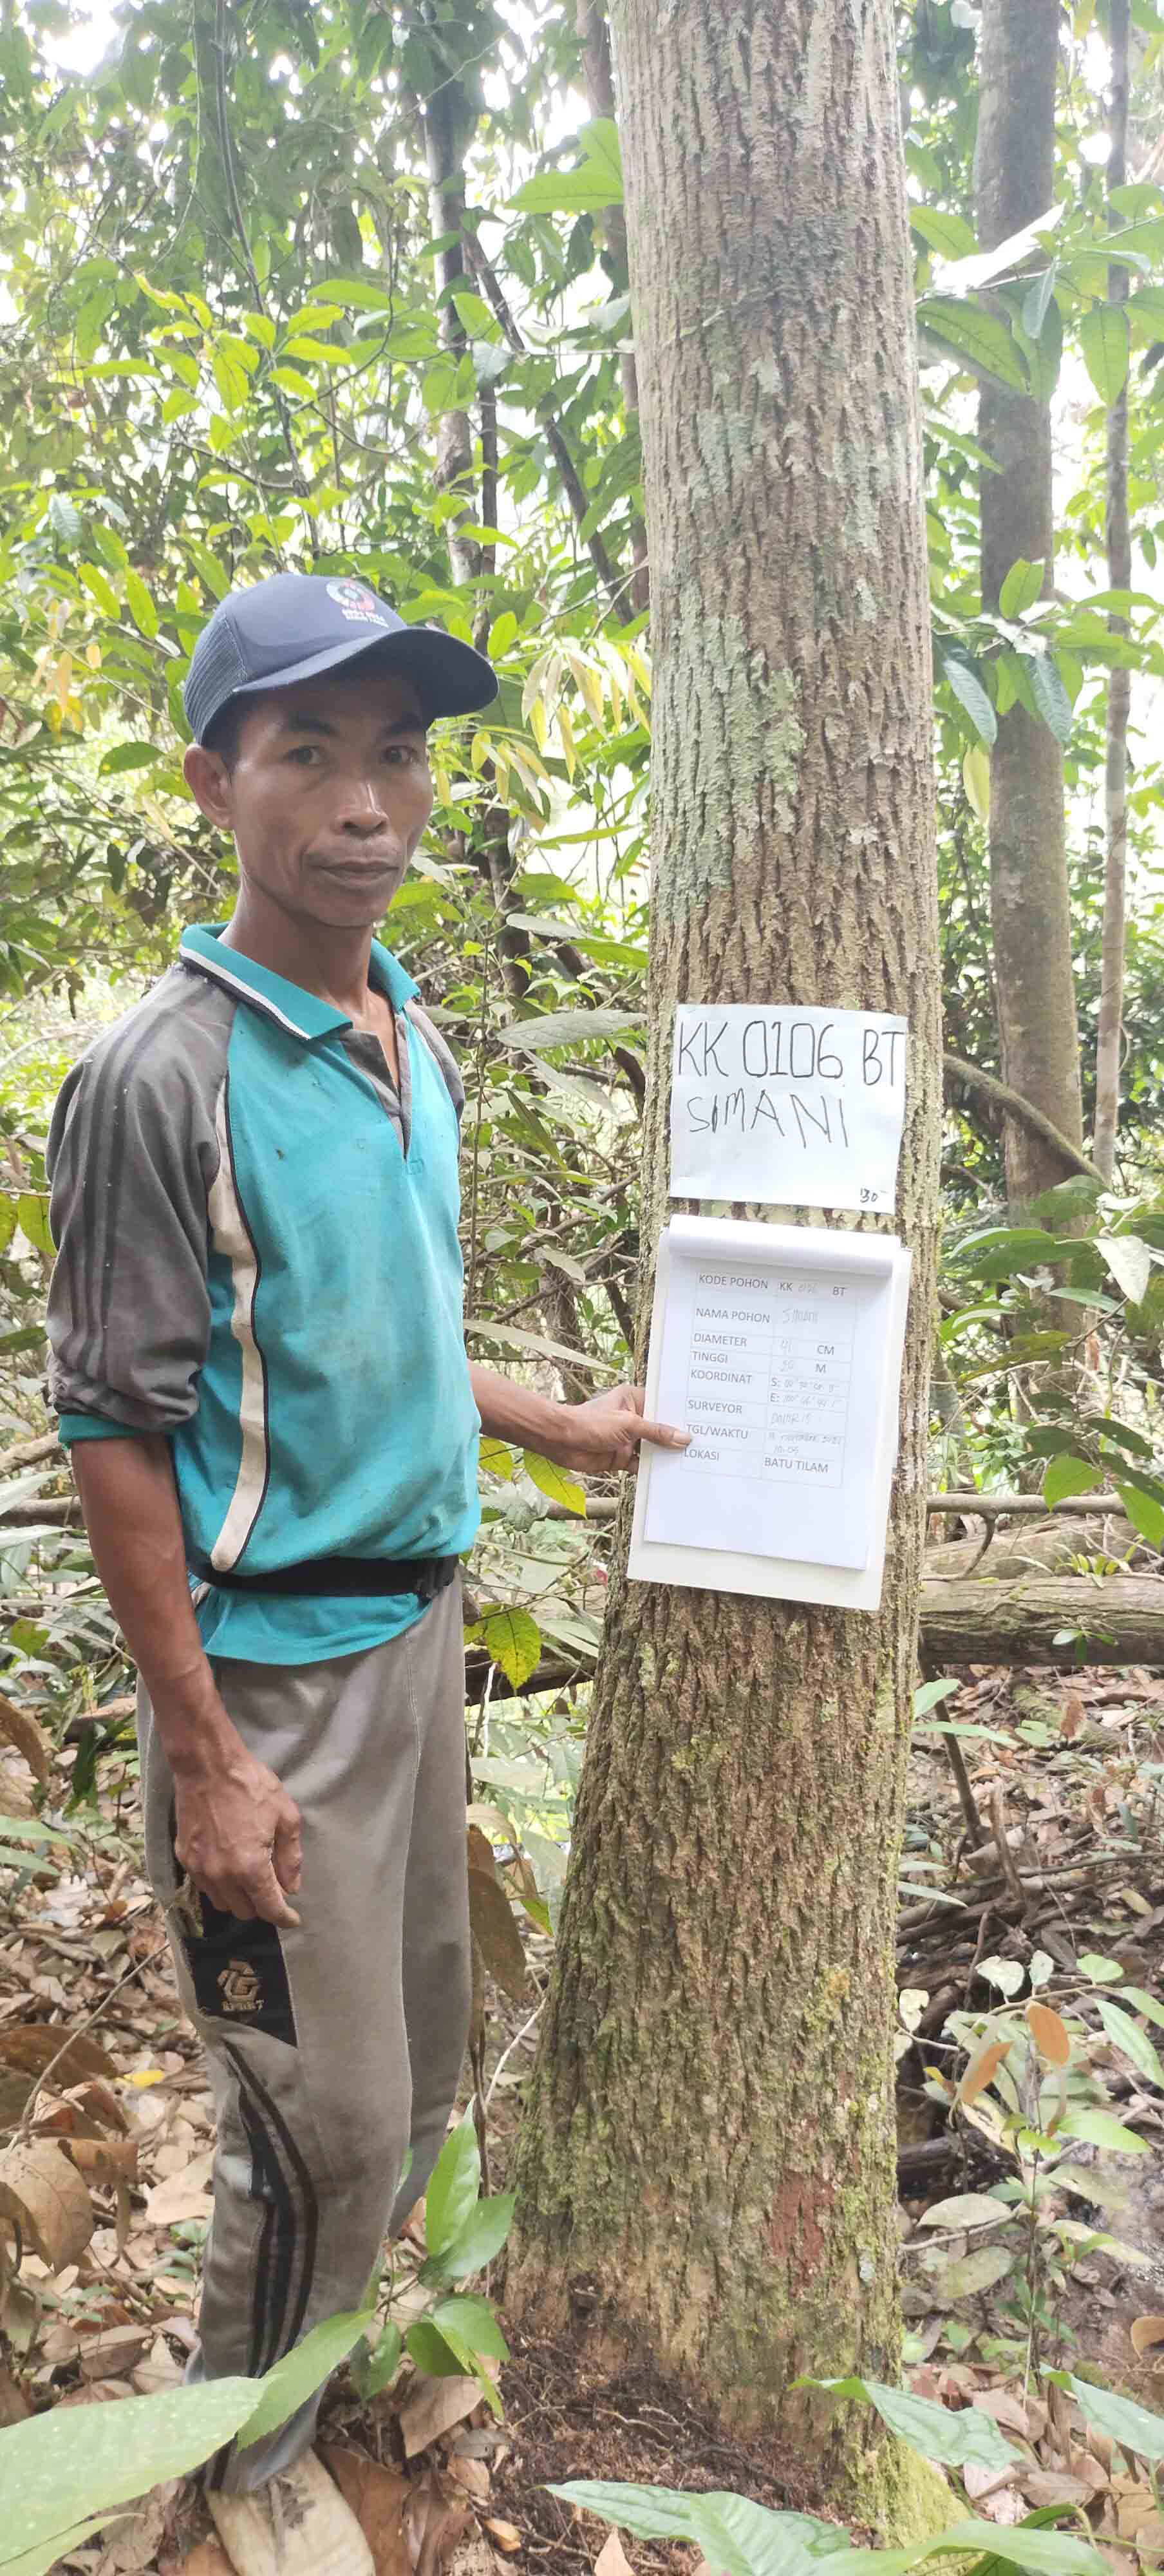 KK 0106 BT
SIMANI
30
KODE POHON KK 0106 BT
NAMA POHON SIMANI
DIAMETER 41 CM
TINGGI 30 M
KOORDINAT S:
E:
SURVEYOR
TGL/WAKTU
LOKASI BATU TILAM